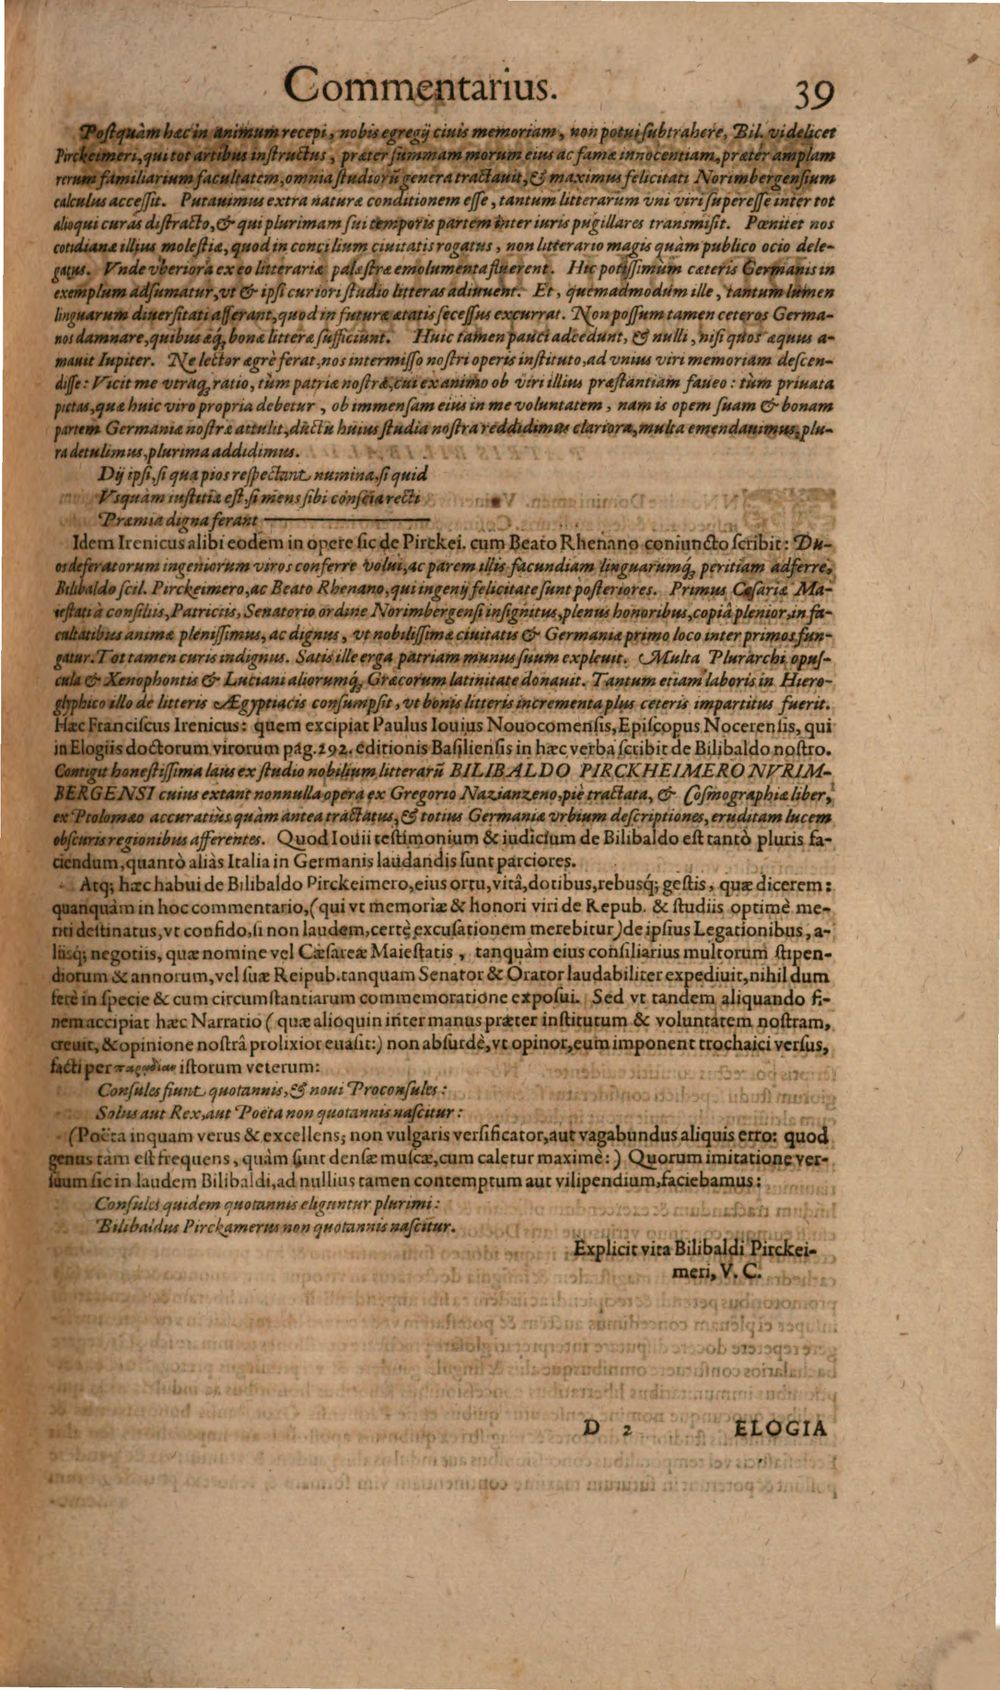 Commentarius. 39
Poſtquàm hæc in animum recepi, nobis egregij ciuis memoriam, non potui ſubtrahere, Bil. videlicet
Pirckeimeri, qui tot artibus inſtructus, præter ſummam morum eius ac famæ innocentiam, præter amplam
rerum familiarium facultatem, omnia ſtudiorũ genera tractauit, & maximus felicitati Norimbergenſium
calculus acceſſit. Putauimus extra naturæ conditionem eſſe, tantum litterarum vni viri ſupereſſe inter tot
alioqui curas diſtracto, & qui plurimam ſui temporis partem inter iuris pugillares transmiſit. Pœnitet nos
cotidianæ illius moleſtiæ, quod in concilium ciuitatis rogatus, non litterario magis quàm publico ocio dele-
gatus. Vnde vberiora ex eo litterariæ palæſtræ emolumenta fluerent. Hic potiſſimùm cæteris Germanis in
exemplum adſumatur, vt & ipſi curiori ſtudio litteras adiuuent. Et, quemadmodùm ille, tantum lumen
linguarum diuerſitati afferant, quod in futuræ ætatis ſeceſſus excurrat. Non poſſum tamen ceteros Germa-
nos damnare, quibus æq́ bonæ litteræ ſufficiunt. Huic tamen pauci adcedunt, & nulli, niſi quos æquus a-
mauit Iupiter. Ne lector ægrè ferat, nos intermiſſo noſtri operis inſtituto, ad vnius viri memoriam deſcen-
diſſe: Vicit me vtraq; ratio, tùm patriæ noſtræ, cui ex animo ob viri illius præſtantiam faueo: tùm priuata
pietas, quæ huic viro propria debetur, ob immenſam eius in me voluntatem, nam is opem ſuam & bonam
partem Germaniæ noſtræ attulit, ductu huius ſtudia noſtra reddidimus clariora, multa emendauimus, plu-
ra detulimus, plurima addidimus.
Dij ipſi, ſi qua pios reſpectant numina, ſi quid
Vſquàm iuſtitiæ eſt, ſi mens ſibi conſcia recti
Præmia digna ferant ———
Idem Irenicus alibi eodem in opere ſic de Pirckei. cum Beato Rhenano coniuncto ſcribit: Du-
os deferatorum ingeniorum viros conferre volui, ac parem illis facundiam linguarumq́, peritiam adferre,
Bilibaldo ſcil. Pirckeimero, ac Beato Rhenano, qui ingenij felicitate ſunt poſteriores. Primus Ceſariæ Ma-
ieſtati à conſiliis, Patriciis, Senatorio ordine Norimbergenſi inſignitus, plenus honoribus, copiâ plenior, in fa-
cultatibus animæ pleniſſimus, ac dignus, vt nobiliſſimæ ciuitatis & Germaniæ primo loco inter primos fun-
gatur. Tot tamen curis indignus. Satis ille erga patriam munus ſuum expleuit. Multa Plurarchi opuſ-
cula & Xenophontis & Luciani aliorumq́, Græcorum latinitate donauit. Tantum etiam laboris in Hiero-
glyphico illo de litteris Ægyptiacis conſumpſit, vt bonis litteris incrementa plus ceteris impartitus fuerit.
Hæc Franciſcus Irenicus: quem excipiat Paulus Iouius Nouocomenſis, Epiſcopus Nocerenſis, qui
in Elogiis doctorum virorum pág. 192. editionis Baſilienſis in hæc verba ſcribit de Bilibaldo noſtro.
Contigit honeſtiſſima laus ex ſtudio nobilium litterarũ BILIBALDO PIRCKHEIMERO NVRIM-
BERGENSI cuius extant nonnulla opera ex Gregorio Nazianzeno, piè tractata, & Coſmographiæ liber,
ex Ptolomæo accuratiùs quàm antea tractatus, & totius Germaniæ vrbium deſcriptiones, eruditam lucem
obſcuris regionibus afferentes. Quod Iouii teſtimonium & iudicium de Bilibaldo eſt tantò pluris fa-
ciendum, quantò aliàs Italia in Germanis laudandis ſunt parciores.
Atq; hæc habui de Bilibaldo Pirckeimero, eius ortu, vitâ, dotibus, rebusq́; geſtis, quæ dicerem:
quanquàm in hoc commentario, (qui vt memoriæ & honori viri de Repub. & ſtudiis optimè me-
riti deſtinatus, vt confido, ſi non laudem, certè excuſationem merebitur) de ipſius Legationibus, a-
liisq́; negotiis, quæ nomine vel Cæſareæ Maieſtatis, tanquàm eius conſiliarius multorum ſtipen-
diorum & annorum, vel ſuæ Reipub. tanquam Senator & Orator laudabiliter expediuit, nihil dum
ferè in ſpecie & cum circumſtantiarum commemoratione expoſui. Sed vt tandem aliquando fi-
nem accipiat hæc Narratio (quæ alioquin inter manus præter inſtitutum & voluntatem noſtram,
creuit, & opinione noſtrâ prolixior euaſit:) non abſurdè, vt opinor, eum imponent trochaici verſus,
facti per παρῳδίαν iſtorum veterum:
Conſules fiunt quotannis, & noui Proconſules:
Solus aut Rex, aut Poëta non quotannis naſcitur:
(Poëta inquam verus & excellens; non vulgaris verſificator, aut vagabundus aliquis erro: quod
genus tàm eſt frequens, quàm ſunt denſæ muſcæ, cum caletur maximè:) Quorum imitatione ver-
ſuum ſic in laudem Bilibaldi, ad nullius tamen contemptum aut vilipendium, faciebamus:
Conſules quidem quotannis eliguntur plurimi:
Bilibaldus Pirckamerus non quotannis naſcitur.
Explicit vita Bilibaldi Pirckei-
meri, V. C.
D 2 ELOGIA